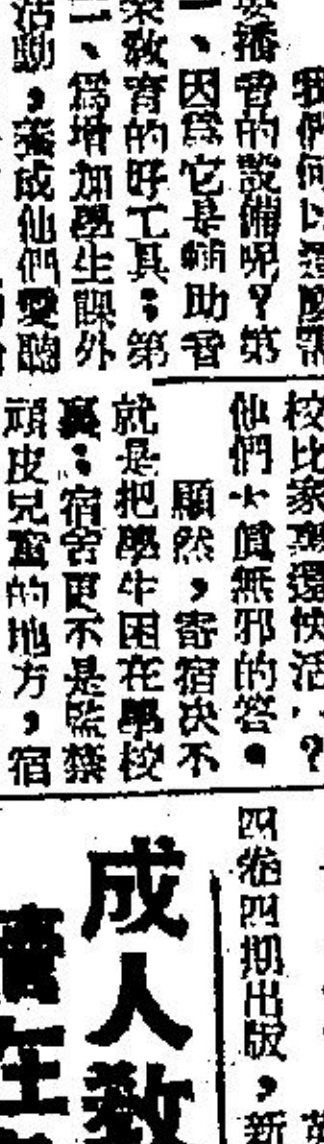 我們何以還應需
要播音的設備呢？第
一、因爲它是輔助音
樂教育的好工具；第
二、爲增加學生課外
活動，養成他們愛聽
校比家裏還快活，？
他們天眞無邪的答。
顯然，寄宿決不
就是把學生困在學校
裏；宿舍更不是監禁
頑皮兒童的地方，宿
四卷四期出版，新
成人教